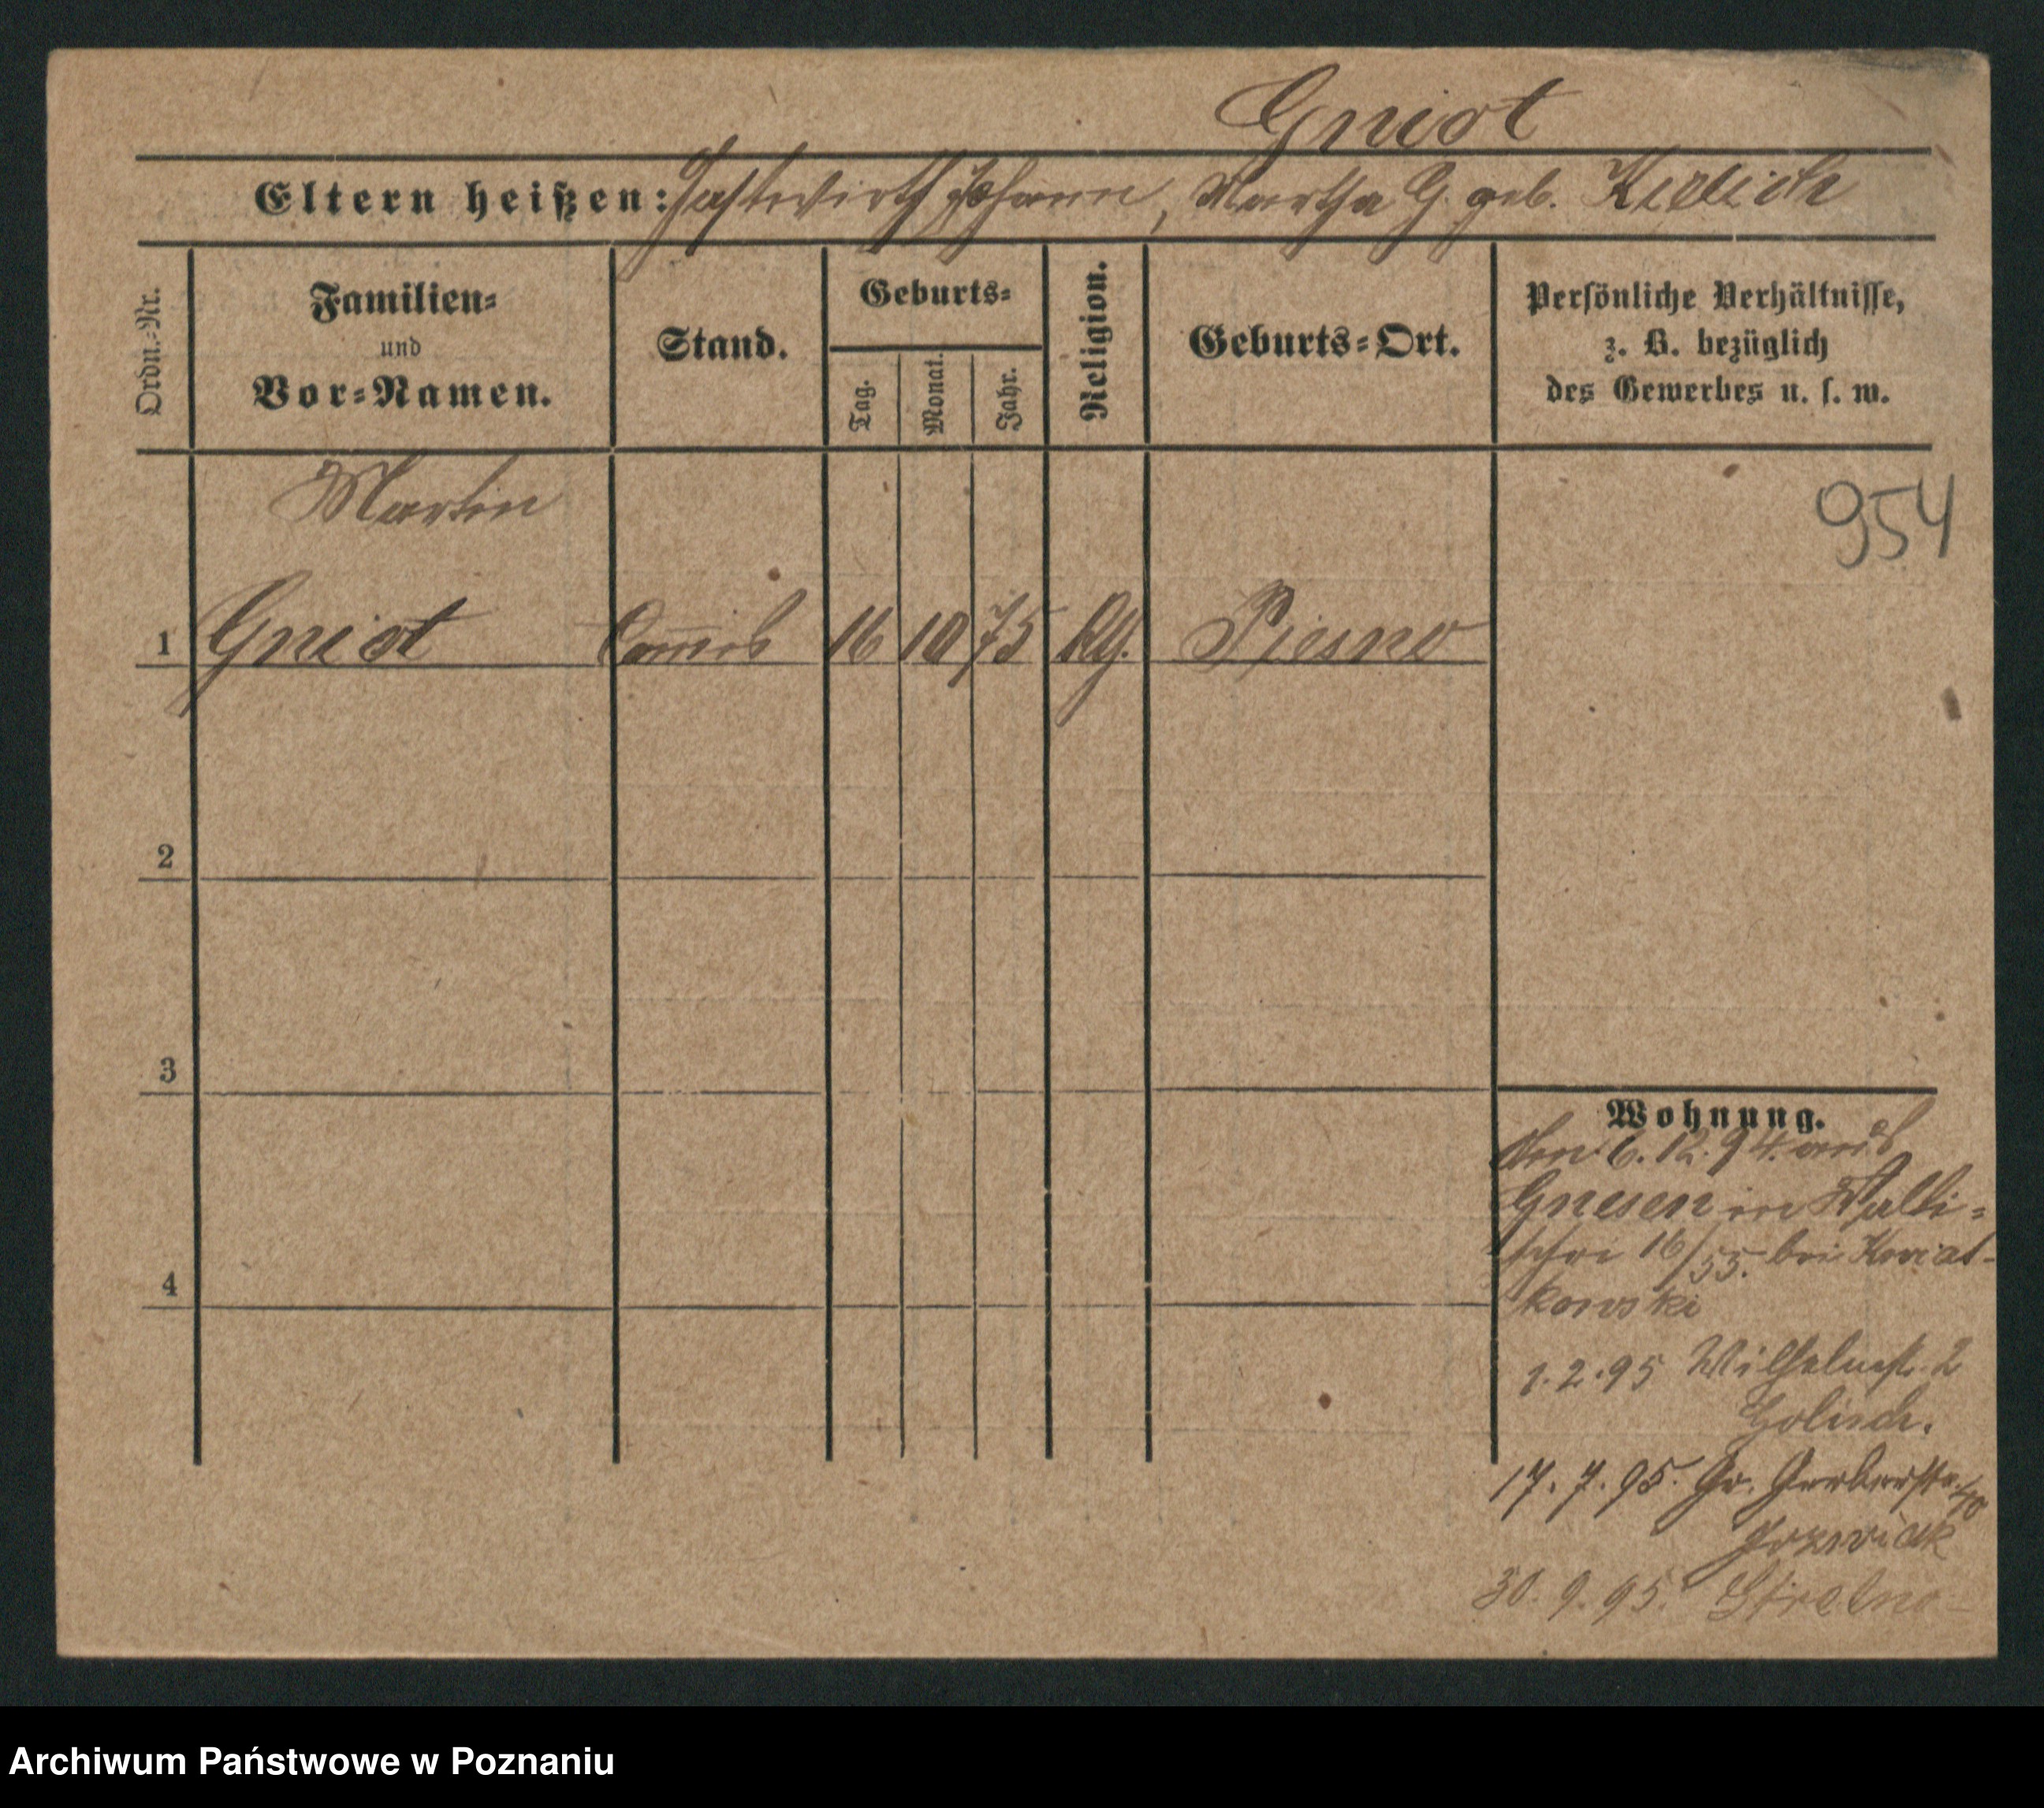 Gniot
Eltern heißen: Gastwirth Johann, Martha G. geb.
Ordn.-Nr.
Familien- und Vor-Namen.
Stand.
Geburts-
Tag.
Monat.
Jahr.
Religion.
Geburts-Ort.
Persönliche Verhältnisse,
z. B. bezüglich
des Gewerbes u. s. w.
954
Martin
1 Gniot Commis 16 10 75 Piesno
2
3
4
Wohnung.
den 6.12.94 aus
Gnesen in Walli-
schei 16/55. bei Kwiat-
kowski
1.2.95 Wilhelmstr. 2
17.7.95. Gr. Gerberstr. 40
Jozwiak
30.9.95. Strelno
Archiwum Państwowe w Poznaniu